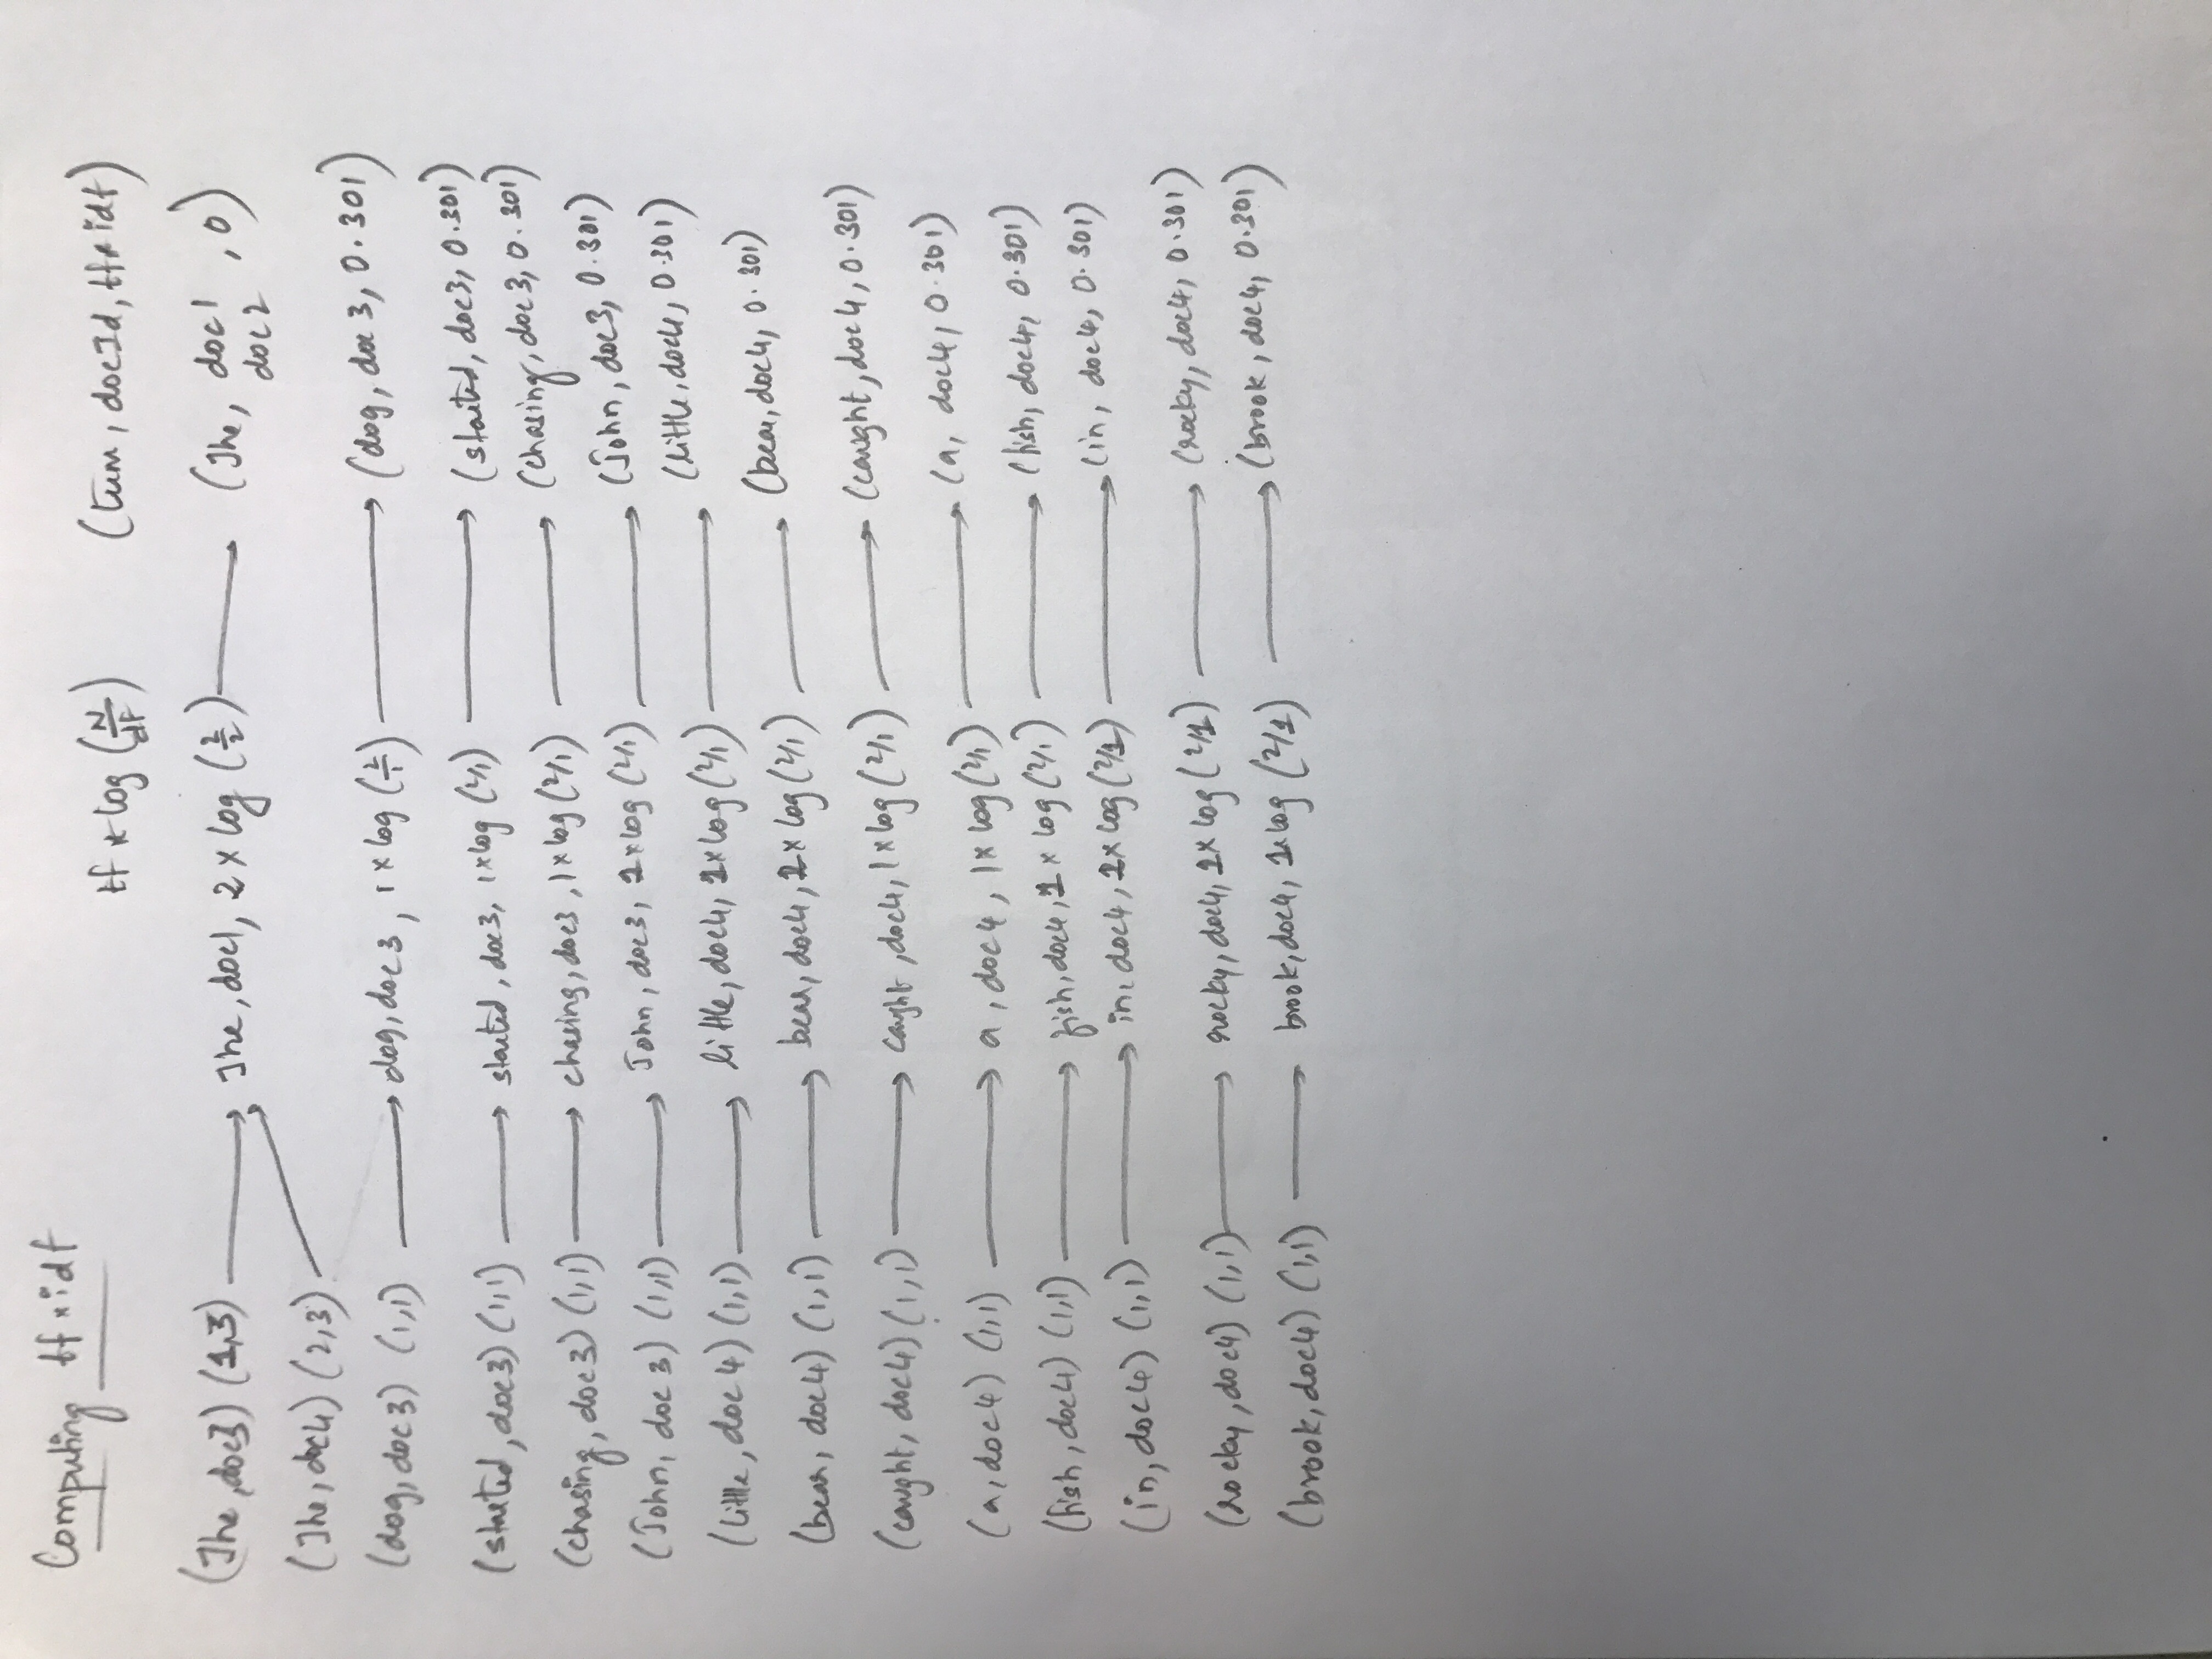 Computing tf x idf
tf * log (N/df) (term, docId, tf*idf)
(The, doc3) (1,3) → The, doc1, 2 x log (2/2) → (The, doc1 doc2, 0)
(The, doc4) (2,3) →
(dog, doc3) (1,1) → dog, doc3, 1 x log (2/1) → (dog, doc 3, 0.301)
(started, doc3) (1,1) → started, doc3, 1xlog (2/1) → (started, doc3, 0.301)
(chasing, doc3) (1,1) → chasing, doc3, 1xlog (2/1) → (chasing, doc3, 0.301)
(John, doc 3) (1,1) → John, doc3, 1xlog (2/1) → (John, doc3, 0.301)
(little, doc 4) (1,1) → little, doc4, 1xlog (2/1) → (little, doc4, 0.301)
(bear, doc4) (1,1) → bear, doc4, 1x log (2/1) → (bear, doc4, 0.301)
(caught, doc4) (1,1) → caught, doc4, 1xlog (2/1) → (caught, doc4, 0.301)
(a, doc4) (1,1) → a, doc4, 1x log (2/1) → (a, doc4, 0.301)
(fish, doc4) (1,1) → fish, doc4, 1 x log (2/1) → (fish, doc4, 0.301)
(in, doc4) (1,1) → in, doc4, 1x log (2/1) → (in, doc4, 0.301)
(rocky, doc4) (1,1) → rocky, doc4, 1x log (2/1) → (rocky, doc4, 0.301)
(brook, doc4) (1,1) → brook, doc4, 1xlog (2/1) → (brook, doc4, 0.301)